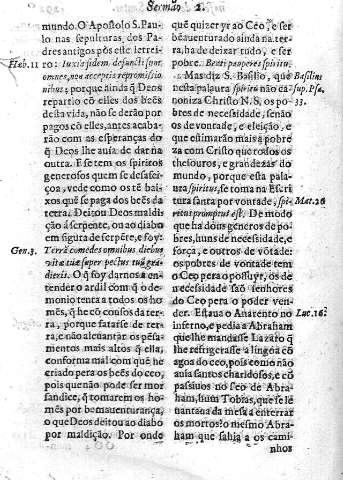 Sermão 2.
mundo. O Apostolo S. Pau-
lo nas sepulturas, dos Pa-
dres antigos pòs este letrei-
Hæb. 11
ro: Iuxta fidem defuncti sunt
omnes, non acceptis repromissio-
nibus; porque ainda q̃ Deos
repartio cõ elles dos beẽs
desta vida, não se derão por
pagos cõ elles, antes acaba-
rão com as esperanças do
q̃ Deos lhe auia de dar na
outra. E se tem os spiritos
generosos quem se desafei-
çoa, vede como os tẽ bai-
xos quẽ se paga dos beẽs da
terra. Deitou Deos maldi-
ção á serpente, ou ao diabo
em figura de serpẽte, e foy:
Gen. 3.
Terrã comedes omnibus diebus
vitæ tuæ super pectus tuũ gra-
dieris. O q̃ foy darnos a en-
tender o ardil com q̃ o de-
monio tenta a todos os ho-
mẽs, q̃ he cõ cousos da ter-
ra, porque fatarse de ter-
ra, e não aleuantar os pẽsa-
mentos mais altos q̃ ella,
conforma mal com quẽ he
criado pera os beẽs do ceo,
pois que não pode ser mor
sandice, q̃ tomarem os ho-
mẽs por bemauenturança,
o que Deos deitou ao diabo
por maldição. Por onde
que quizer yr ao Ceo, e ser
bẽauenturado ainda na ter-
ra, ha de deixar tudo, e ser
pobre. Beati pauperes spiritu.
Mas diz S. Basilio, que
Basilius
nesta palaura spiritu não ca-
sup. Psa.
noniza Christo N. S. os po-
33.
bres de necessidade, senão
os de vontade, e eleição, e
que estimarão mais a pobre
za com Cristo que todos os
thesouros, e grandezas do
mundo, porque esta pala-
ura spiritus, se toma na Escri
tura santa por vontade, spi-
Mat. 26
ritus promptus est. De modo
que ha dous generos de po-
bres, huns de necessidade, e
força, e outros de võtade:
os pobres de vontade tem
o Ceo pera o possuyr, os de
necessidade saõ senhores
do Ceo pera o poder ven-
der. Estaua o Auarento no
Luc. 16.
inferno, e pedia a Abraham
que lhe mandasse Lazaro q̃
lhe refrigerasse a lingoa cõ
agoa do ceo, pois como não
auia santos charidosos, e cõ
passiuos no seo de Abra-
ham, hum Tobias, que se le
uantaua da mesa a enterrar
os mortos? o mesmo Abra-
ham que sahia a os cami-
nhos